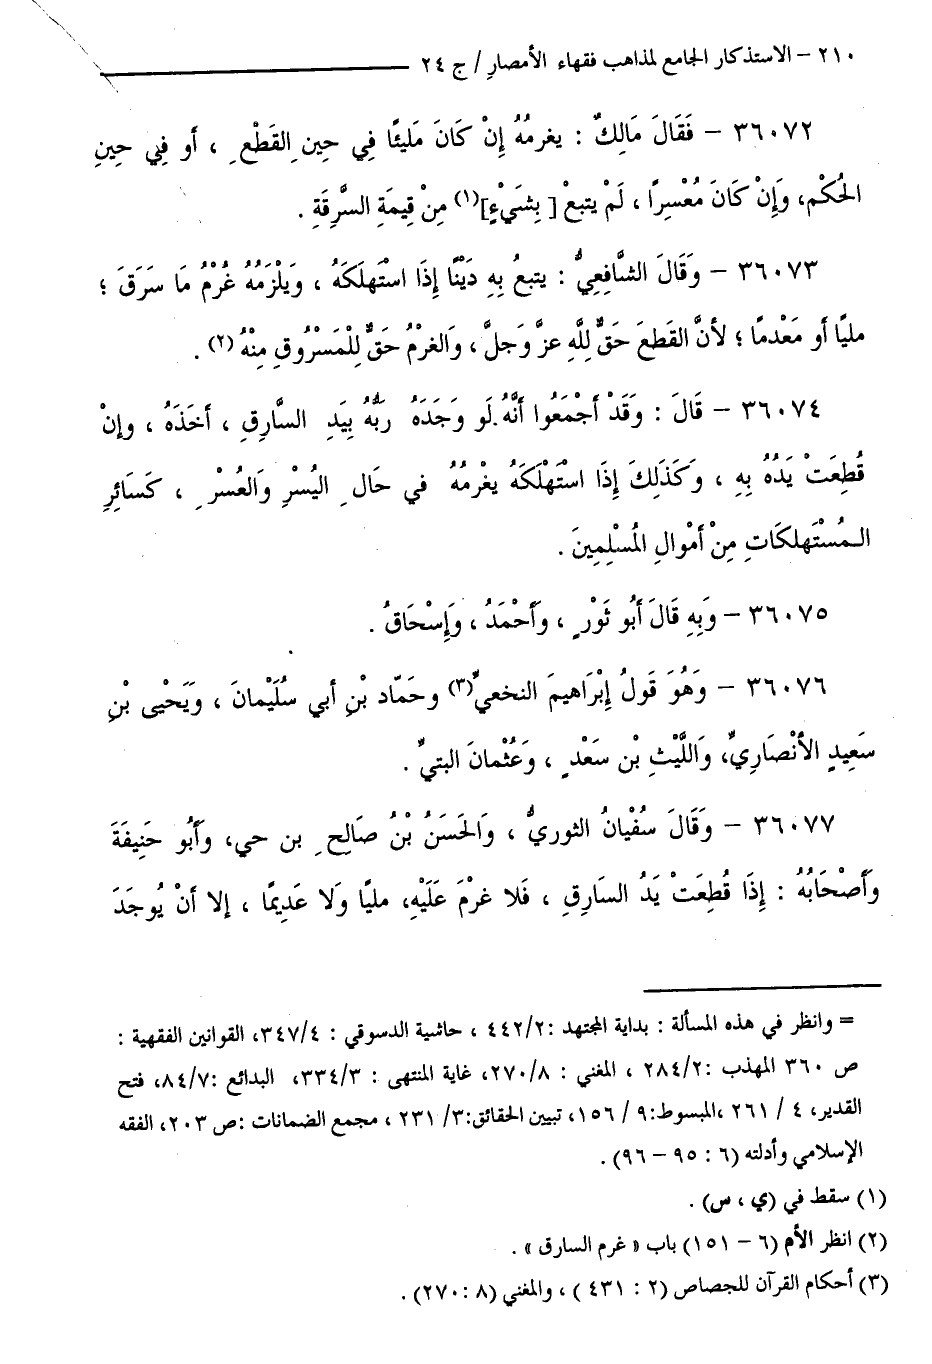 ٢١٠ – الاستذكار الجامع لمذاهب فقهاء الأمصارِ / ج ٢٤
٣٦٠٧٢ – فَقَالَ مَالِكٌ : يغرمُهُ إِنْ كَانَ مَليئًا فِي حِينِ القَطْعِ ، أو فِي حِينِ
الحُكْم، وَإِنْ كَانَ مُعْسِرًا ، لَمْ يتبعْ [ بِشَيْءٍ](١) مِنْ قِيمَةِ السَّرِقَةِ .
٣٦٠٧٣ – وَقَالَ الشَّافِعِيُّ : يتبعُ بِهِ دَيْنًا إِذَا اسْتَهلَكَهُ ، وَيَلْزَمُهُ غُرْمُ مَا سَرَقَ ؛
مليًا أو مَعْدمًا ؛ لأنَّ القَطعَ حَقٌّ لِلَّهِ عزَّ وَجلَّ ، وَالغرْمُ حَقٌّ لِلْمَسْرُوقِ مِنْهُ (٢) .
٣٦٠٧٤ – قَالَ : وَقَدْ أجْمَعُوا أنَّهُ لَو وَجَدَهُ رَبُّهُ بِيَدِ السَّارِقِ ، أخَذَهُ ، وإنْ
قُطِعَتْ يَدُهُ بِهِ ، وَكَذَلِكَ إِذَا اسْتَهْلَكَهُ يغْرمُهُ في حَالِ اليُسْرِ وَالعُسْرِ ، كَسَائِرِ
الـمُسْتَهلكَاتِ مِنْ أمْوالِ المُسْلِمِينَ .
٣٦٠٧٥ – وَبِهِ قَالَ أبُو ثَوْرٍ ، وَأحْمَدُ ، وَإِسْحَاقُ .
٣٦٠٧٦ – وَهُوَ قَولُ إِبْرَاهِيمَ النخعيِّ(٣) وحَمَّاد بْنِ أبي سُلَيْمانَ ، وَيَحْيى بْنِ
سَعِيدٍ الأنْصَارِيِّ، وَاللَّيْثِ بْن سَعْدٍ ، وَعُثْمانَ البتيِّ .
٣٦٠٧٧ – وَقَالَ سُفْيانُ الثوريُّ ، وَالحَسَنُ بْنُ صَالِحِ بن حي، وَأبُو حَنِيفَةَ
وَأصْحَابُهُ : إِذَا قُطِعَتْ يَدُ السَارِقِ ، فَلا غرْمَ عَلَيْهِ، مليًا وَلا عَدِيمًا ، إلا أنْ يُوجَدَ
= وانظر في هذه المسألة : بداية المجتهد :٤٤٢/٢ ، حاشية الدسوقي : ٣٤٧/٤، القوانين الفقهية :
ص ٣٦٠ المهذب :٢٨٤/٢ ، المغني : ٢٧٠/٨، غاية المنتهى : ٣٣٤/٣، البدائع :٨٤/٧، فتح
القدير، ٤ / ٢٦١ ،المبسوط:٩ / ١٥٦، تبيين الحقائق:٣/ ٢٣١ ، مجمع الضمانات :ص ٢٠٣، الفقه
الإسلامي وأدلته (٦ : ٩٥ – ٩٦) .
(١) سقط في (ي ، س) .
(٢) انظر الأم (٦ – ١٥١) باب « غرم السارق » .
(٣) أحكام القرآن للجصاص (٢ : ٤٣١ ) ، والمغني (٨ :٢٧٠) .